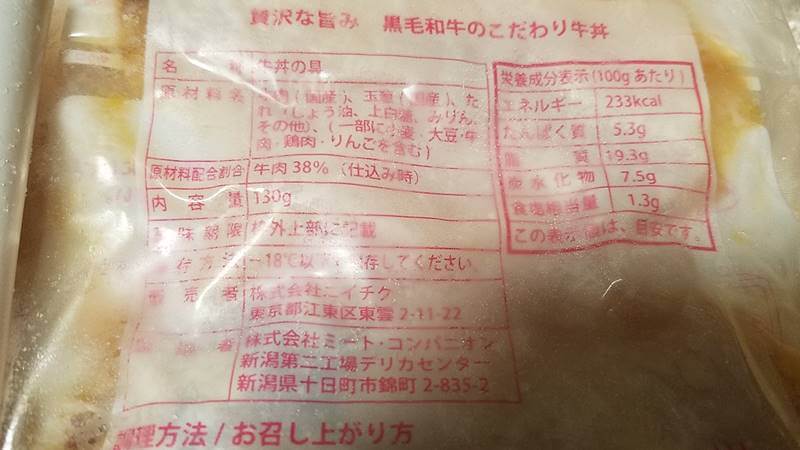 贅沢な旨み 黒毛和牛のこだわり牛丼
名 称 牛丼の具
原材料名 牛肉(国産)、玉葱(国産)、た
れ(しょう油、上白糖、みりん、
その他)、(一部に小麦・大豆・牛
肉・鶏肉・りんごを含む)
原材料配合割合 牛肉38%(仕込み時)
内 容 量 130g
賞味期限 枠外上部に記載
保存方法 −18℃以下で保存してください。
販 売 者 株式会社ニイチク
東京都江東区東雲2-11-22
製 造 者 株式会社ミート・コンパニオン
新潟第二工場デリカセンター
新潟県十日町市錦町2-835-2
栄養成分表示(100gあたり)
エネルギー 233kcal
たんぱく質 5.3g
脂 質 19.3g
炭水化物 7.5g
食塩相当量 1.3g
この表示値は、目安です。
調理方法/お召し上がり方